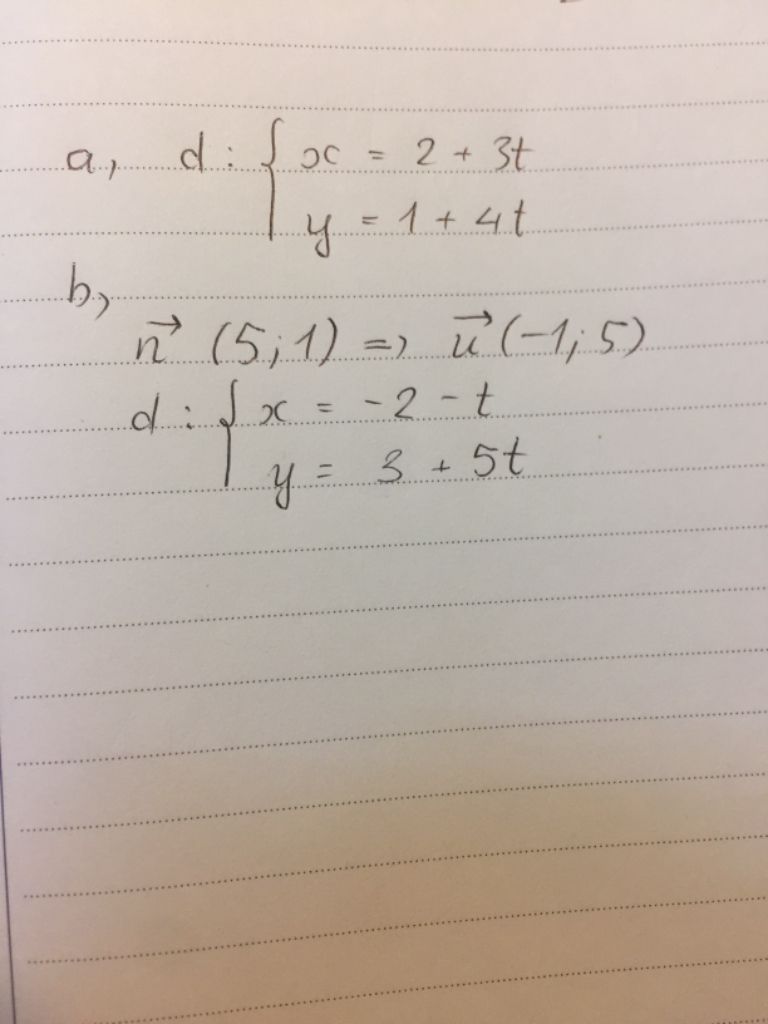 a, d : { x = 2 + 3t
y = 1 + 4t
b,
n⃗ (5; 1) => u⃗ (-1; 5)
d : { x = -2 - t
y = 3 + 5t